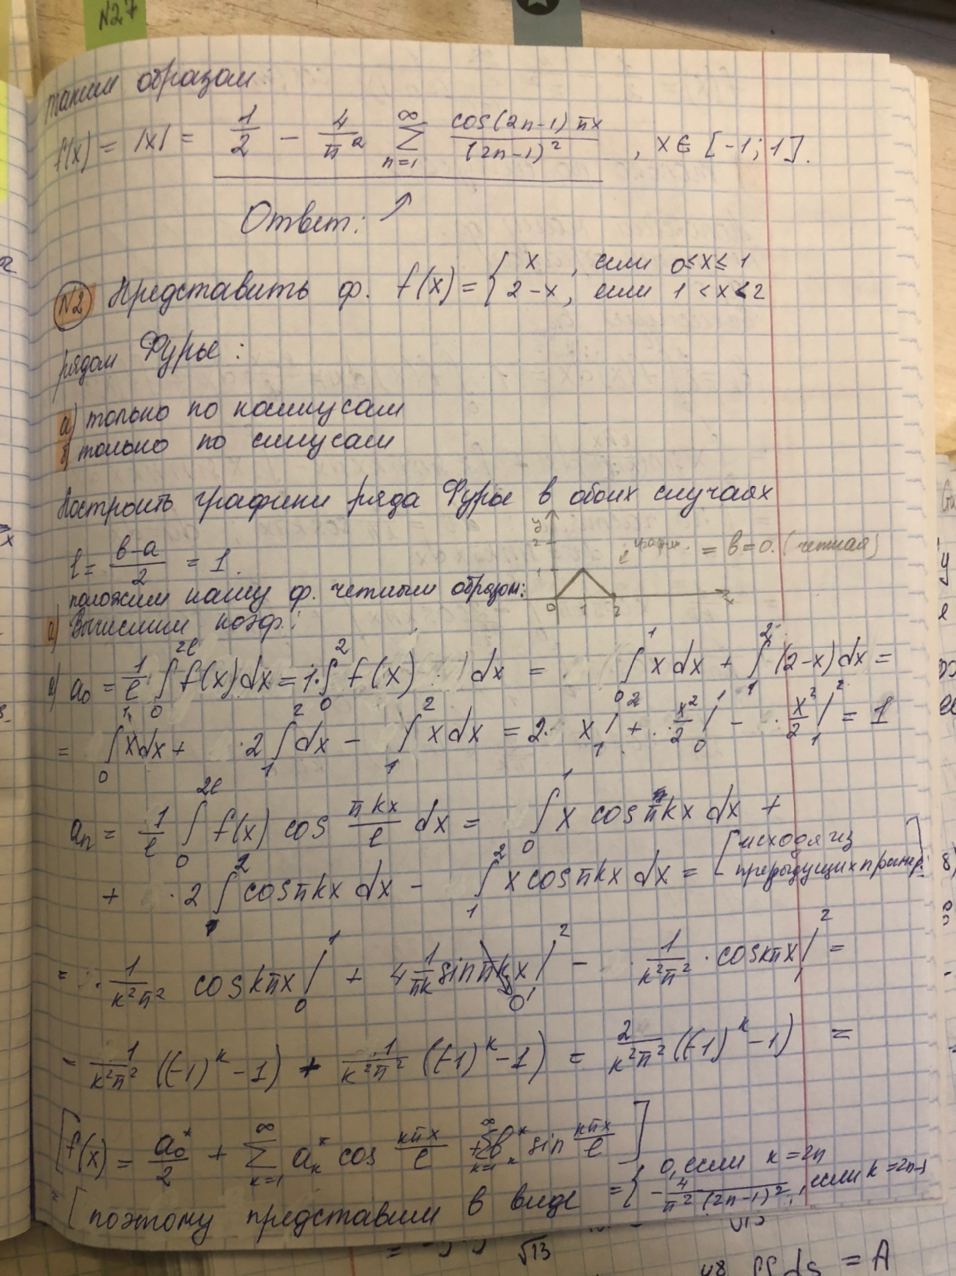 N27
таким образом:
f(x) = |x| = 1/2 − 4/π² ∑_{n=1}^{∞} cos(2n−1)πx / (2n−1)² , x ∈ [−1; 1].
Ответ: ↗
N2 Представить ф. f(x) = { x , если 0≤x≤1
2−x, если 1<x<2
рядом Фурье:
а) только по косинусам
б) только по синусам
Построить графики ряда Фурье в обоих случаях
l = (b−a)/2 = 1.
= b=0. (четная)
y 2 1 0 1 2 x
положим нашу ф. четным образом:
а) Вычислим коэф.:
a₀ = 1/l ∫_0^{2l} f(x)dx = 1·∫_0^2 f(x) dx = ∫_0^1 x dx + ∫_1^2 (2−x)dx =
= ∫_0^1 x dx + 2∫_1^2 dx − ∫_1^2 x dx = 2· x|_1^2 + x²/2 |_0^1 − x²/2 |_1^2 = 1
aₙ = 1/l ∫_0^{2l} f(x) cos πkx/l dx = ∫_0^1 x cos πkx dx +
+ 2∫_1^2 cos πkx dx − ∫_1^2 x cos πkx dx = [исходя из
предыдущих пример.]
= 1/k²π² cos kπx |_0^1 + 4 1/πk sin πkx |^2 − 1/k²π² · cos kπx |^2 =
= 1/k²π² ((−1)^k − 1) + 1/k²π² ((−1)^k − 1) = 2/k²π² ((−1)^k − 1) =
[f(x) = a₀*/2 + ∑_{k=1}^{∞} aₖ* cos kπx/l + ∑_{k=1}^{∞} bₖ* sin kπx/l]
= [поэтому представим в виде = { 0, если k=2n
−4/π²(2n−1)², если k=2n−1
√13
√13
= A